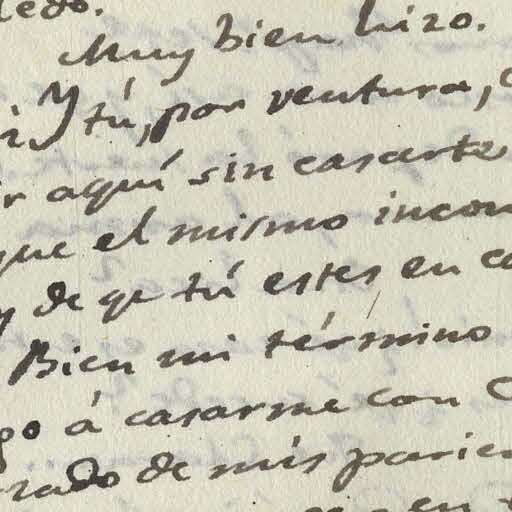 ledo.
Muy bien hizo.
Y tú, por ventura,
r aquí sin casarte
que el mismo incon
y de qe tú estes en ca
Bien mi término
go á casarme con
rado de mis parien
en